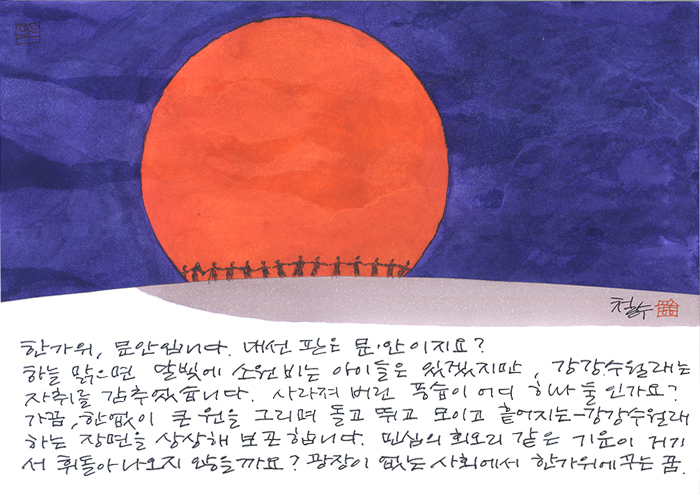 철수
한가위, 문안입니다. 대선 판은 문·안이지요?
하늘 맑으면 달빛에 소원 비는 아이들은 있겠지만, 강강수월래는
자취를 감추었습니다. 사라져 버린 풍습이 어디 하나 둘인가요?
가끔, 한없이 큰 원을 그리며 돌고 뛰고 모이고 흩어지는-강강수월래
하는 장면을 상상해 보곤 합니다. 민심의 회오리 같은 기운이 거기
서 휘돌아 나오지 않을까요? 광장이 없는 사회에서 한가위에 꾸는 꿈.